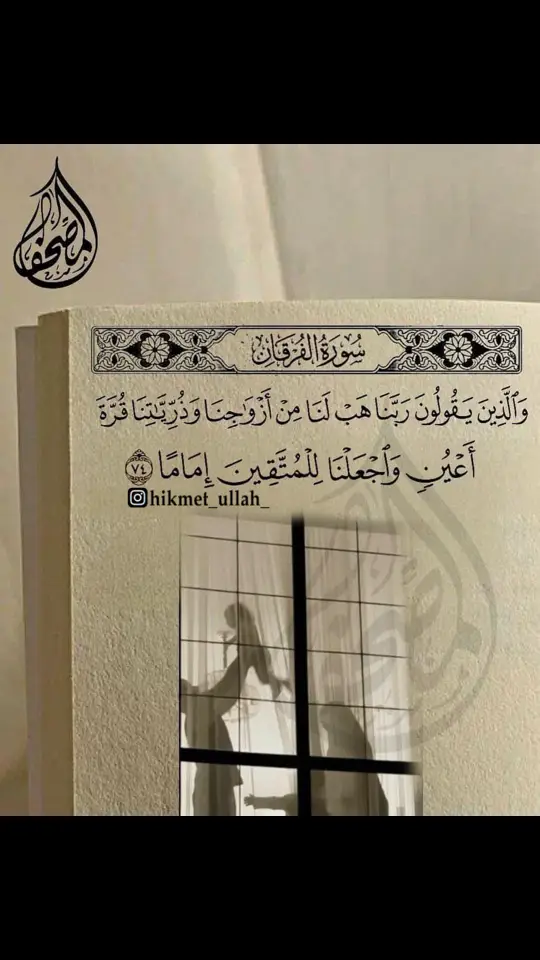 المصحف
سُورَةُ الفُرْقَان
وَٱلَّذِينَ يَقُولُونَ رَبَّنَا هَبْ لَنَا مِنْ أَزْوَٰجِنَا وَذُرِّيَّٰتِنَا قُرَّةَ
أَعْيُنٍ وَٱجْعَلْنَا لِلْمُتَّقِينَ إِمَامًا ٧٤
hikmet_ullah_
المصحف